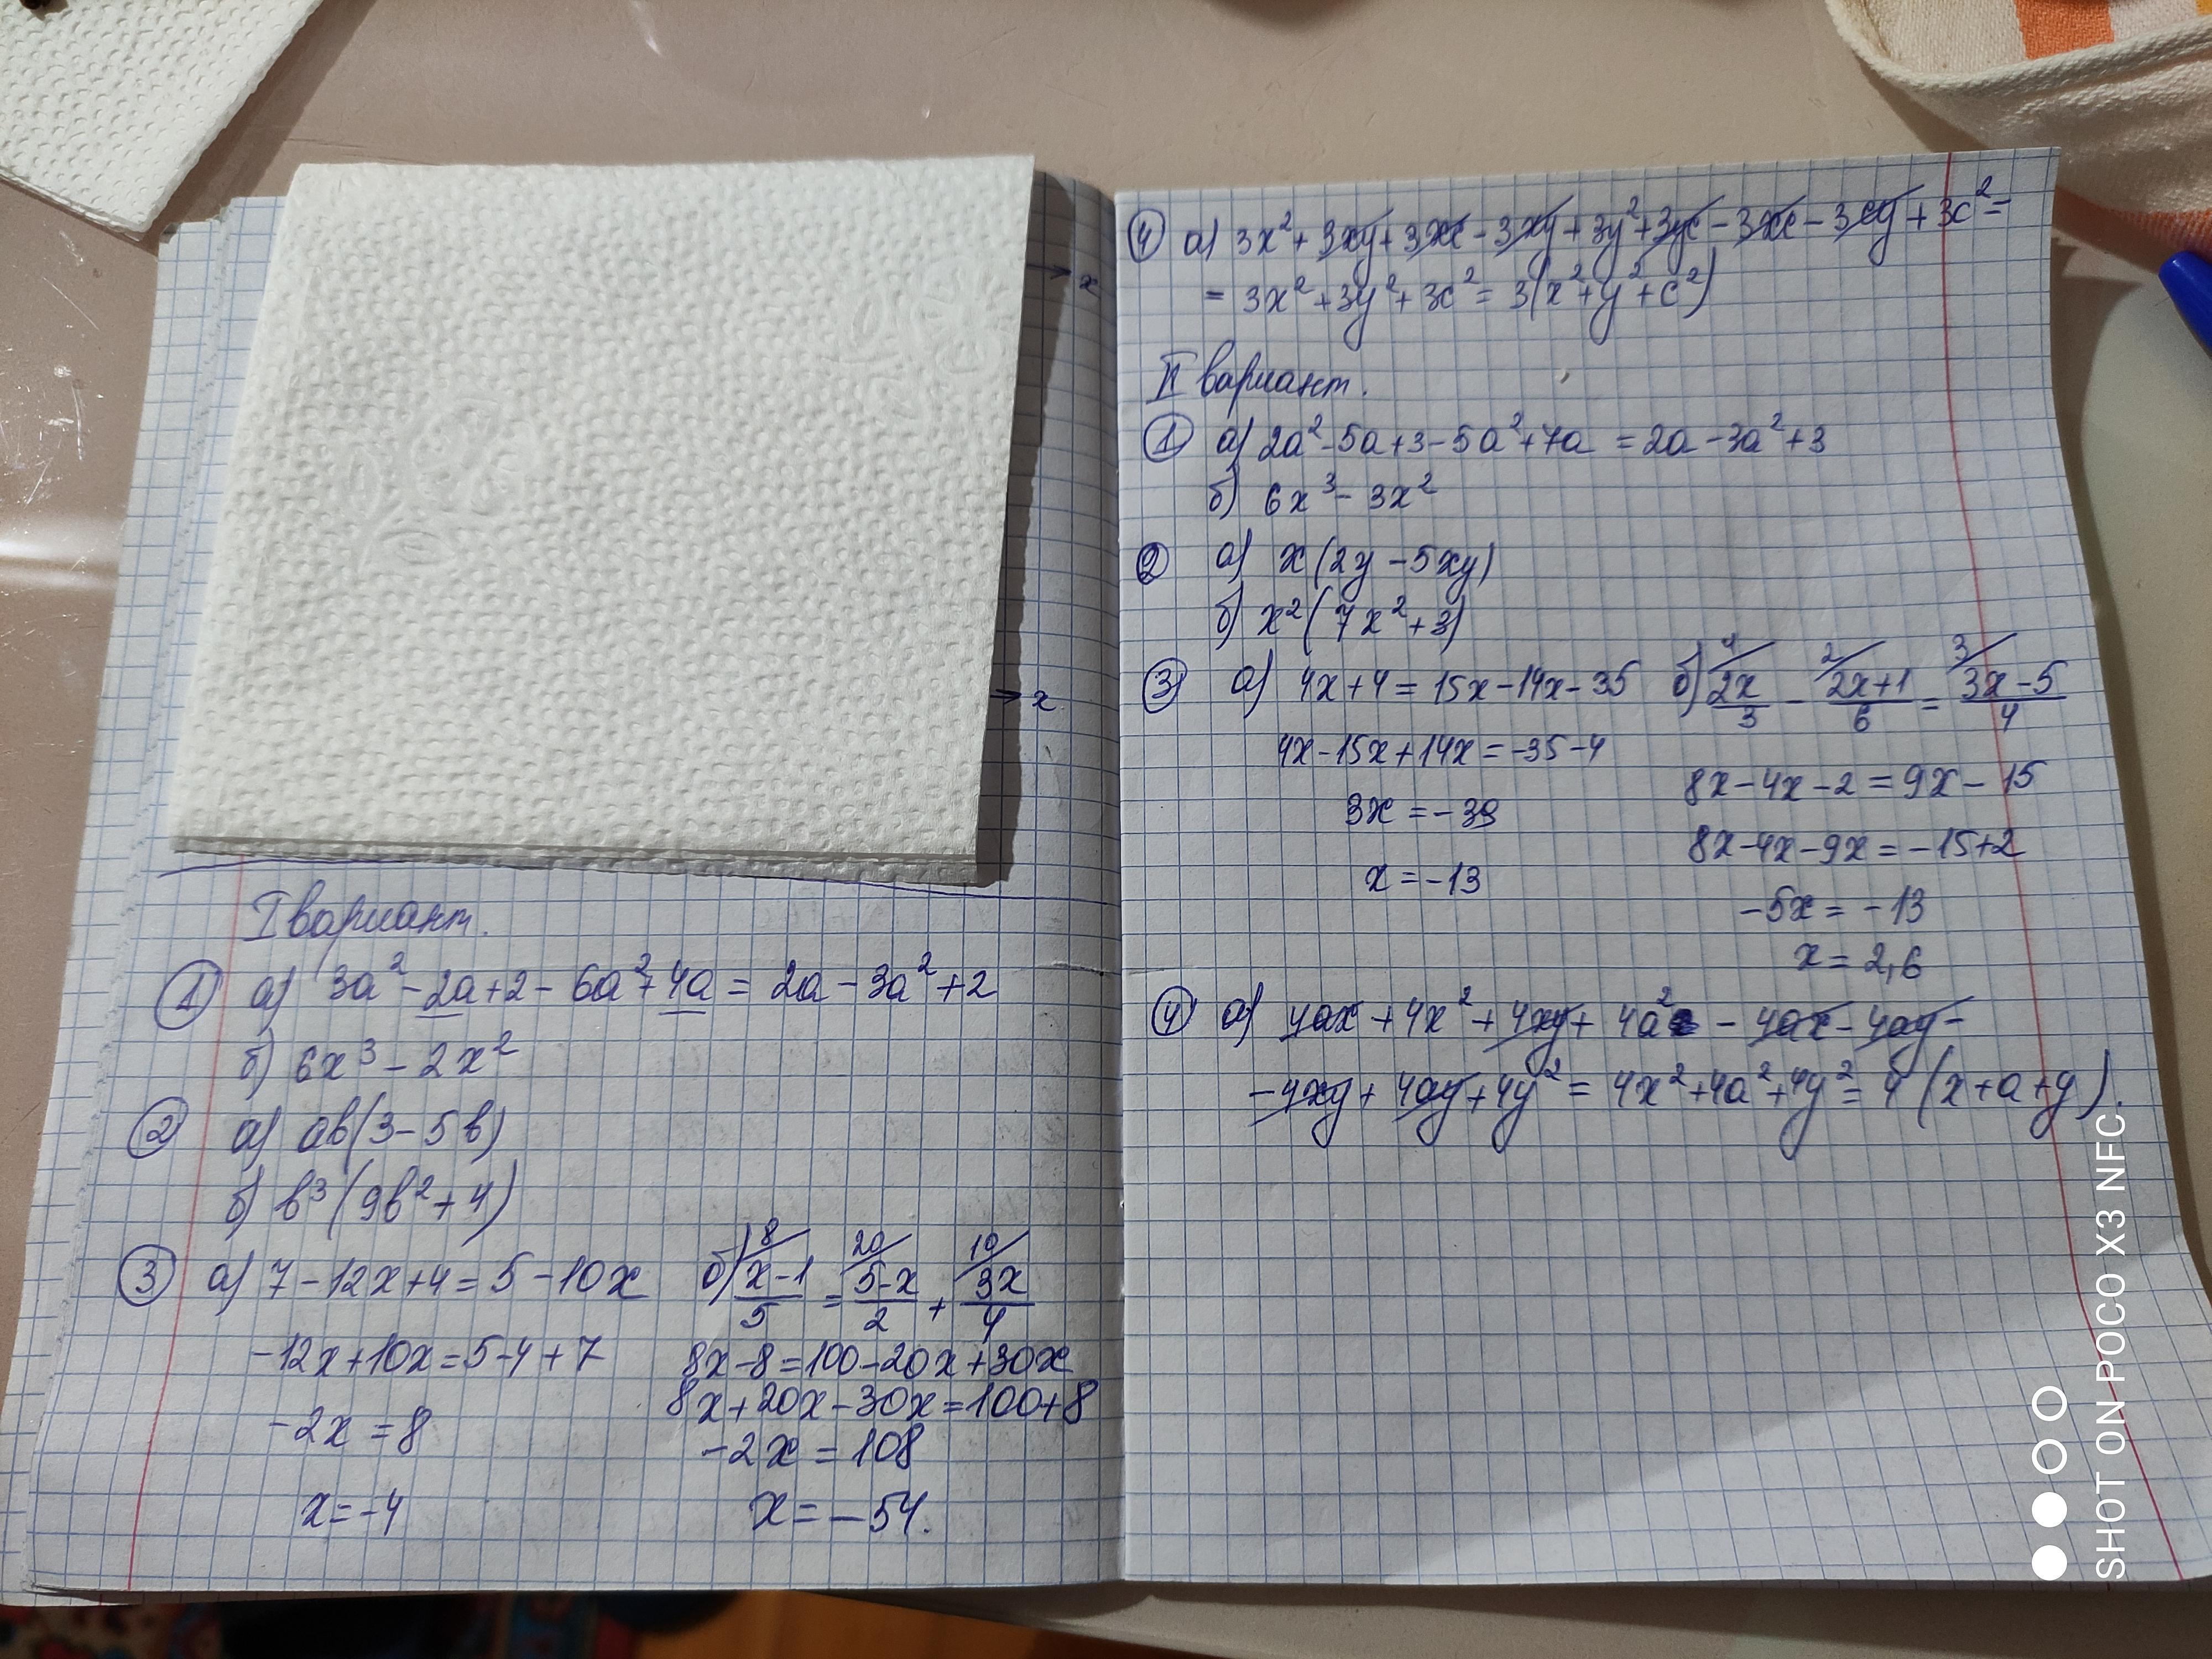 x
x
I вариант.
① а) 3a² - 2a + 2 - 6a² + 4a = 2a - 3a² + 2
б) 6x³ - 2x²
② а) ab(3 - 5b)
б) b³(9b² + 4)
③ а) 7 - 12x + 4 = 5 - 10x
-12x + 10x = 5 - 4 + 7
-2x = 8
x = -4
б) 8/ (x-1)/5 = 20/ (5-x)/2 + 10/ 3x/4
8x - 8 = 100 - 20x + 30x
8x + 20x - 30x = 100 + 8
-2x = 108
x = -54.
④ а) 3x² + 3xy + 3xc - 3xy + 3y² + 3yc - 3xc - 3cy + 3c² =
= 3x² + 3y² + 3c² = 3(x² + y² + c²)
II вариант.
① а) 2a² - 5a + 3 - 5a² + 7a = 2a - 3a² + 3
б) 6x³ - 3x²
② а) x(2y - 5xy)
б) x²(7x² + 3)
③ а) 4x + 4 = 15x - 14x - 35
4x - 15x + 14x = -35 - 4
3x = -39
x = -13
б) 4/ 2x/3 - 2/ (2x+1)/6 = 3/ (3x-5)/4
8x - 4x - 2 = 9x - 15
8x - 4x - 9x = -15 + 2
-5x = -13
x = 2,6
④ а) 4ax + 4x² + 4xy + 4a² - 4ax - 4ay -
- 4xy + 4ay + 4y² = 4x² + 4a² + 4y² = 4(x + a + y).
SHOT ON POCO X3 NFC